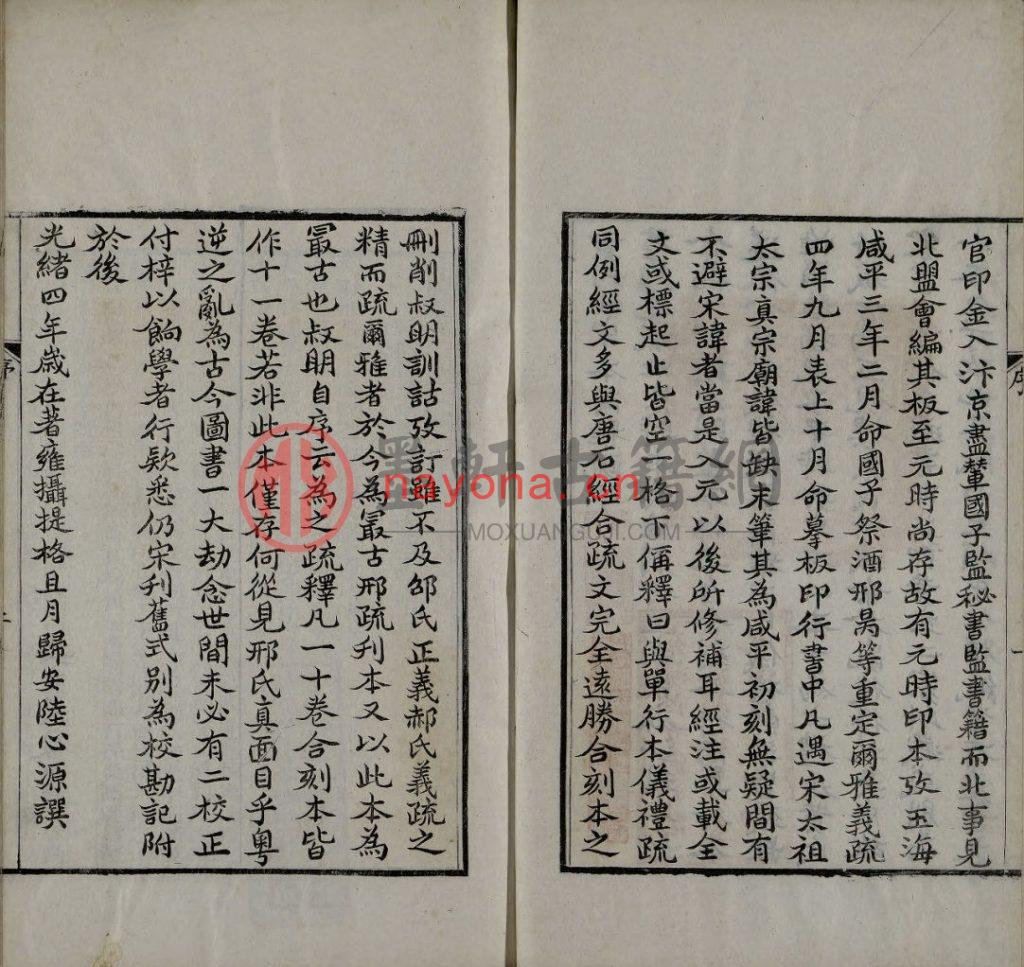 官印金入汴京盡輦國子監秘書監書籍而北事見
北盟會編其板至元時尚存故有元時印本攷玉海
咸平三年二月命國子祭酒邢昺等重定爾雅義疏
四年九月表上十月命摹板印行書中凡遇宋太祖
太宗真宗廟諱皆缺末筆其為咸平初刻無疑間有
不避宋諱者當是入元以後所修補耳經注或載全
文或標起止皆空一格下稱釋曰與單行本儀禮疏
同例經文多與唐石經合疏文完全遠勝合刻本之
序
一
刪削叔明訓詁攷訂雖不及邵氏正義郝氏義疏之
精而疏爾雅者於今為㝡古邢疏刋本又以此本為
㝡古也叔明自序云為之疏釋凡一十卷合刻本皆
作十一卷若非此本僅存何從見邢氏真面目乎粵
逆之亂為古今圖書一大劫念世間未必有二校正
付梓以餉學者行欵悉仍宋刋舊式別為校勘記附
於後
光緒四年歲在著雍攝提格且月歸安陸心源譔
序
墨軒古籍網
nayona.cn
MOXUANGUJI.COM